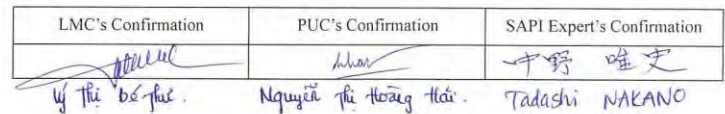 LMC's Confirmation PUC's Confirmation SAPI Expert's Confirmation
中野 唯史
Lý Thị bé Thư. Nguyễn Thị Hoàng Hái. Tadashi NAKANO